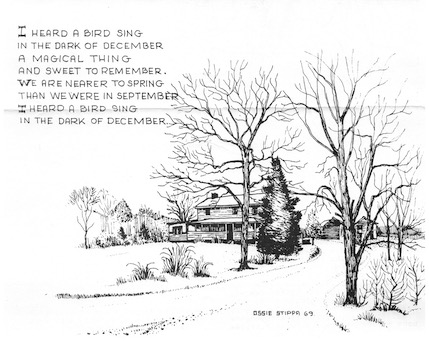 I HEARD A BIRD SING
IN THE DARK OF DECEMBER
A MAGICAL THING
AND SWEET TO REMEMBER.
WE ARE NEARER TO SPRING
THAN WE WERE IN SEPTEMBER
I HEARD A BIRD SING
IN THE DARK OF DECEMBER.
OSSIE STIPPA 69